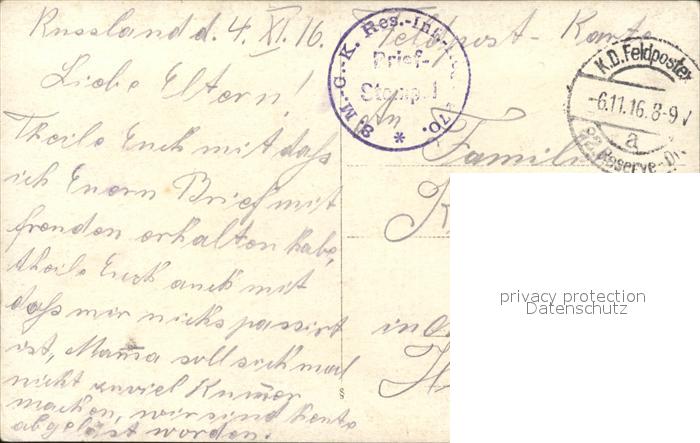 Russland d. 4. XI. 16.
Feldpost - Karte
S. M.-G.-K. Res.-Inf.- 70. *
Brief-
Stempel
K.D. Feldpostex
-6.11.16. 8-9 V
a
82 Reserve-Di
Liebe Eltern!
An
Familie
Theile Euch mit dass
ich Euern Brief mit
freuden erhalten habe,
theile Euch auch mit
dass mir nichs passirt
ist, Mama soll sich mal
nicht zuviel Kumer
machen, wir sind heute
abgelöst worden.
in
privacy protection
Datenschutz